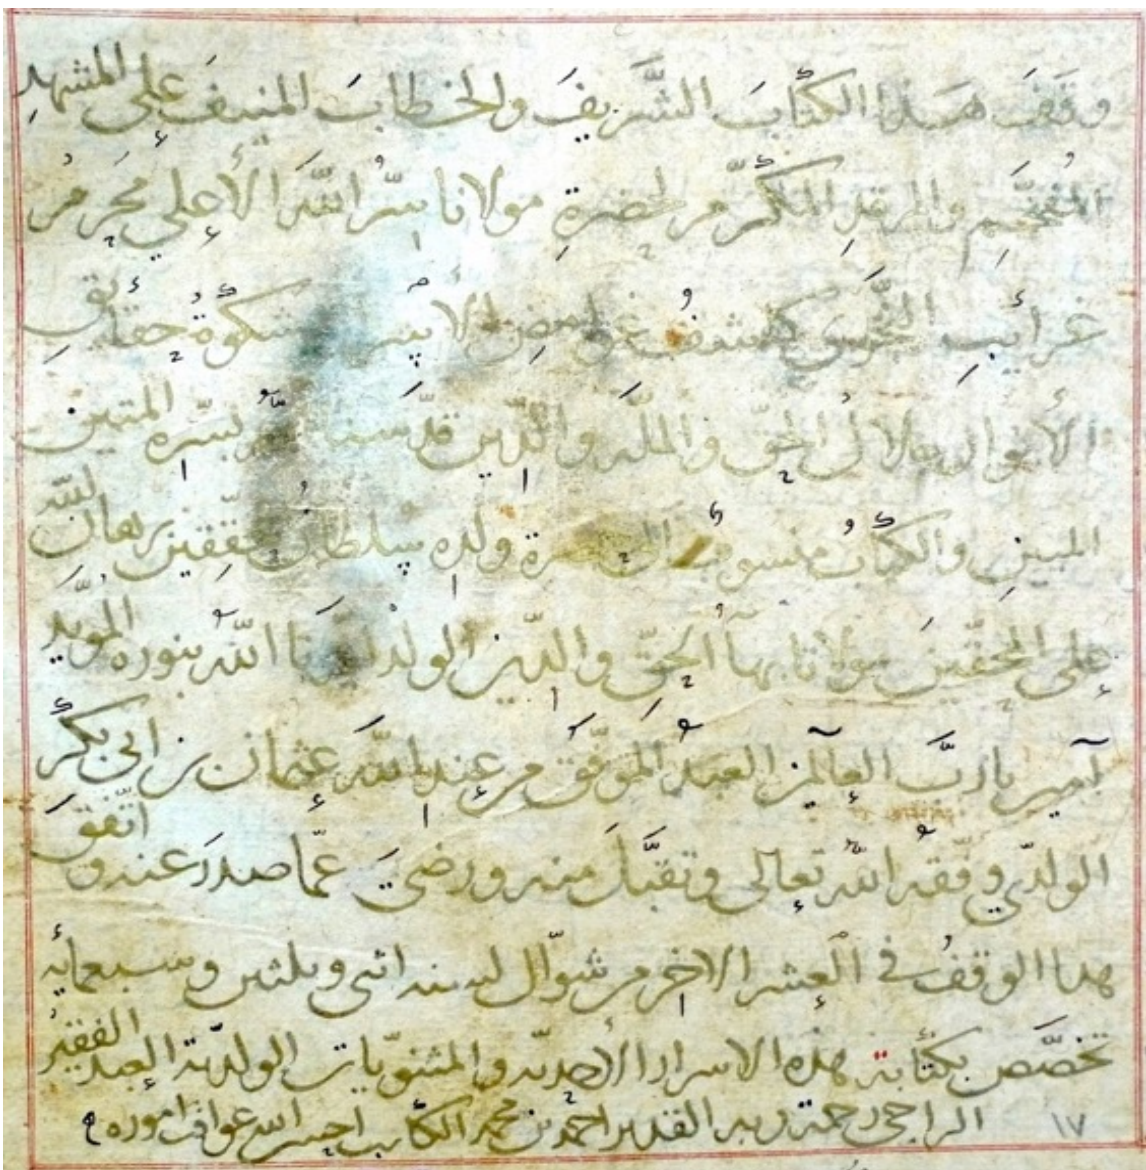 وَقَفَ هَذا الكتَابَ الشَّريفَ والخطابَ المنيفَ على المشهدِ
المُفخَّمِ والمرقدِ المُكرَّم لحضرةِ مولانا سِرُّ اللهِ الأعلى مَحرمُ
غرائبِ كاشفُ غوامضِ الأسرار مشكوةُ حقائقِ
الأنوار جلالُ الحقّ والملّة والدّين قدّسنا اللهُ بسرّه المتين
المبين والكتابُ منسوبٌ الى حضرة ولده سلطانُ المحققين برهانُ الله
على المحقّقينَ مولانا بهاءُ الحقِّ والدّين الولد نوّرنا اللهُ بنوره المؤيّد
آمين يا ربَّ العالمين العبدُ الموفّق من عند الله عثمان بن ابى بكر
الولدىّ وفّقه الله تعالى وتقبّل منه ورضىَ عمّا صدرَ عنه و اتّفقَ
هذا الوقفُ فى العشر الاخر من شوّال لسنه اثنى وثلثين وسبعمائه
تخصَّصَ بكتابة هذه الاسرار الأحديّه والمثنويّات الولديّة العبد الفقيرُ
الراجى رحمة ربه القدير احمد بن محمد الكاتب احسن الله عواقب اموره
١٧